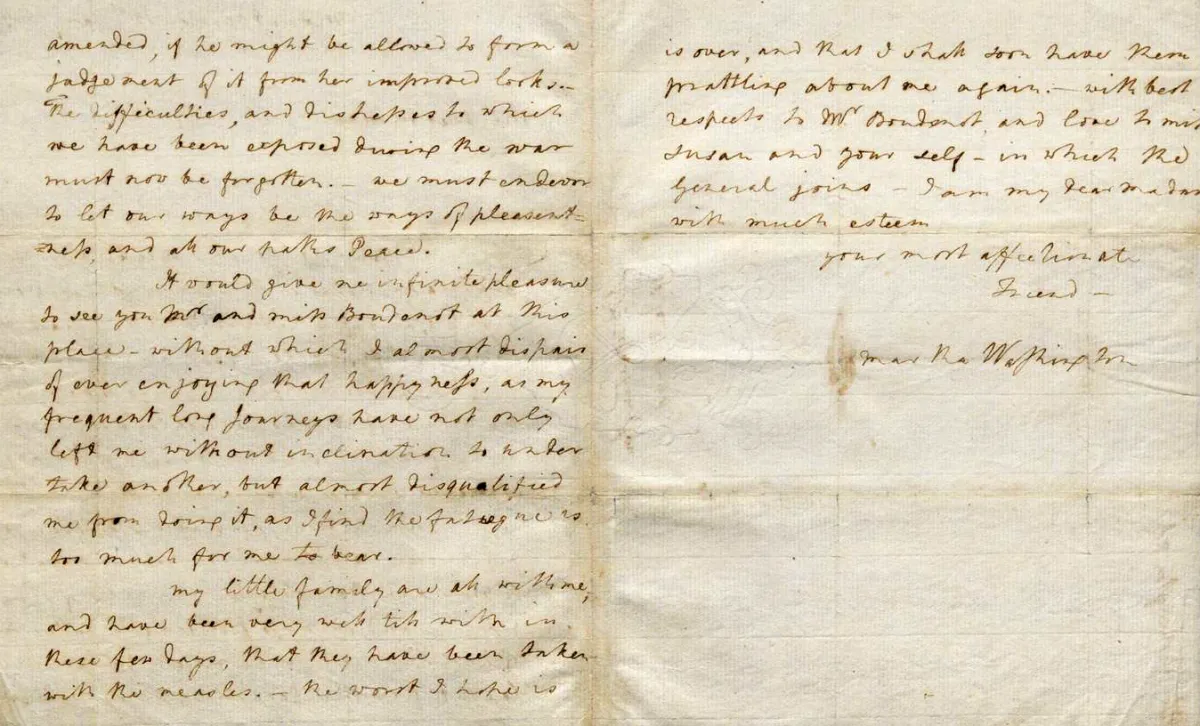 amended, if he might be allowed to form a
judgement of it from her improved looks.—
The difficulties, and distresses to which
we have been exposed during the war
must now be forgotten.— we must endevor
to let our ways be the ways of pleasent=
=ness and all our paths Peace.
It would give me infinite pleasure
to see you Mr and miss Boudenot at this
place – without which I almost dispair
of ever enjoying that happyness, as my
frequent long Journeys have not only
left me without inclination to under
take another, but almost disqualified
me from doing it, as I find the fatiegue is
too much for me to bear.
my little family are all with me,
and have been very well till with in
these few days, that they have been taken
with the measles.— the worst I hope is
is over, and that I shall soon have them
prattling about me again.— with best
respects to Mr Boudenot, and love to miss
Susan and your self – in which the
General joins – I am my dear madam
with much esteem
your most affectionate
Friend –
martha Washington